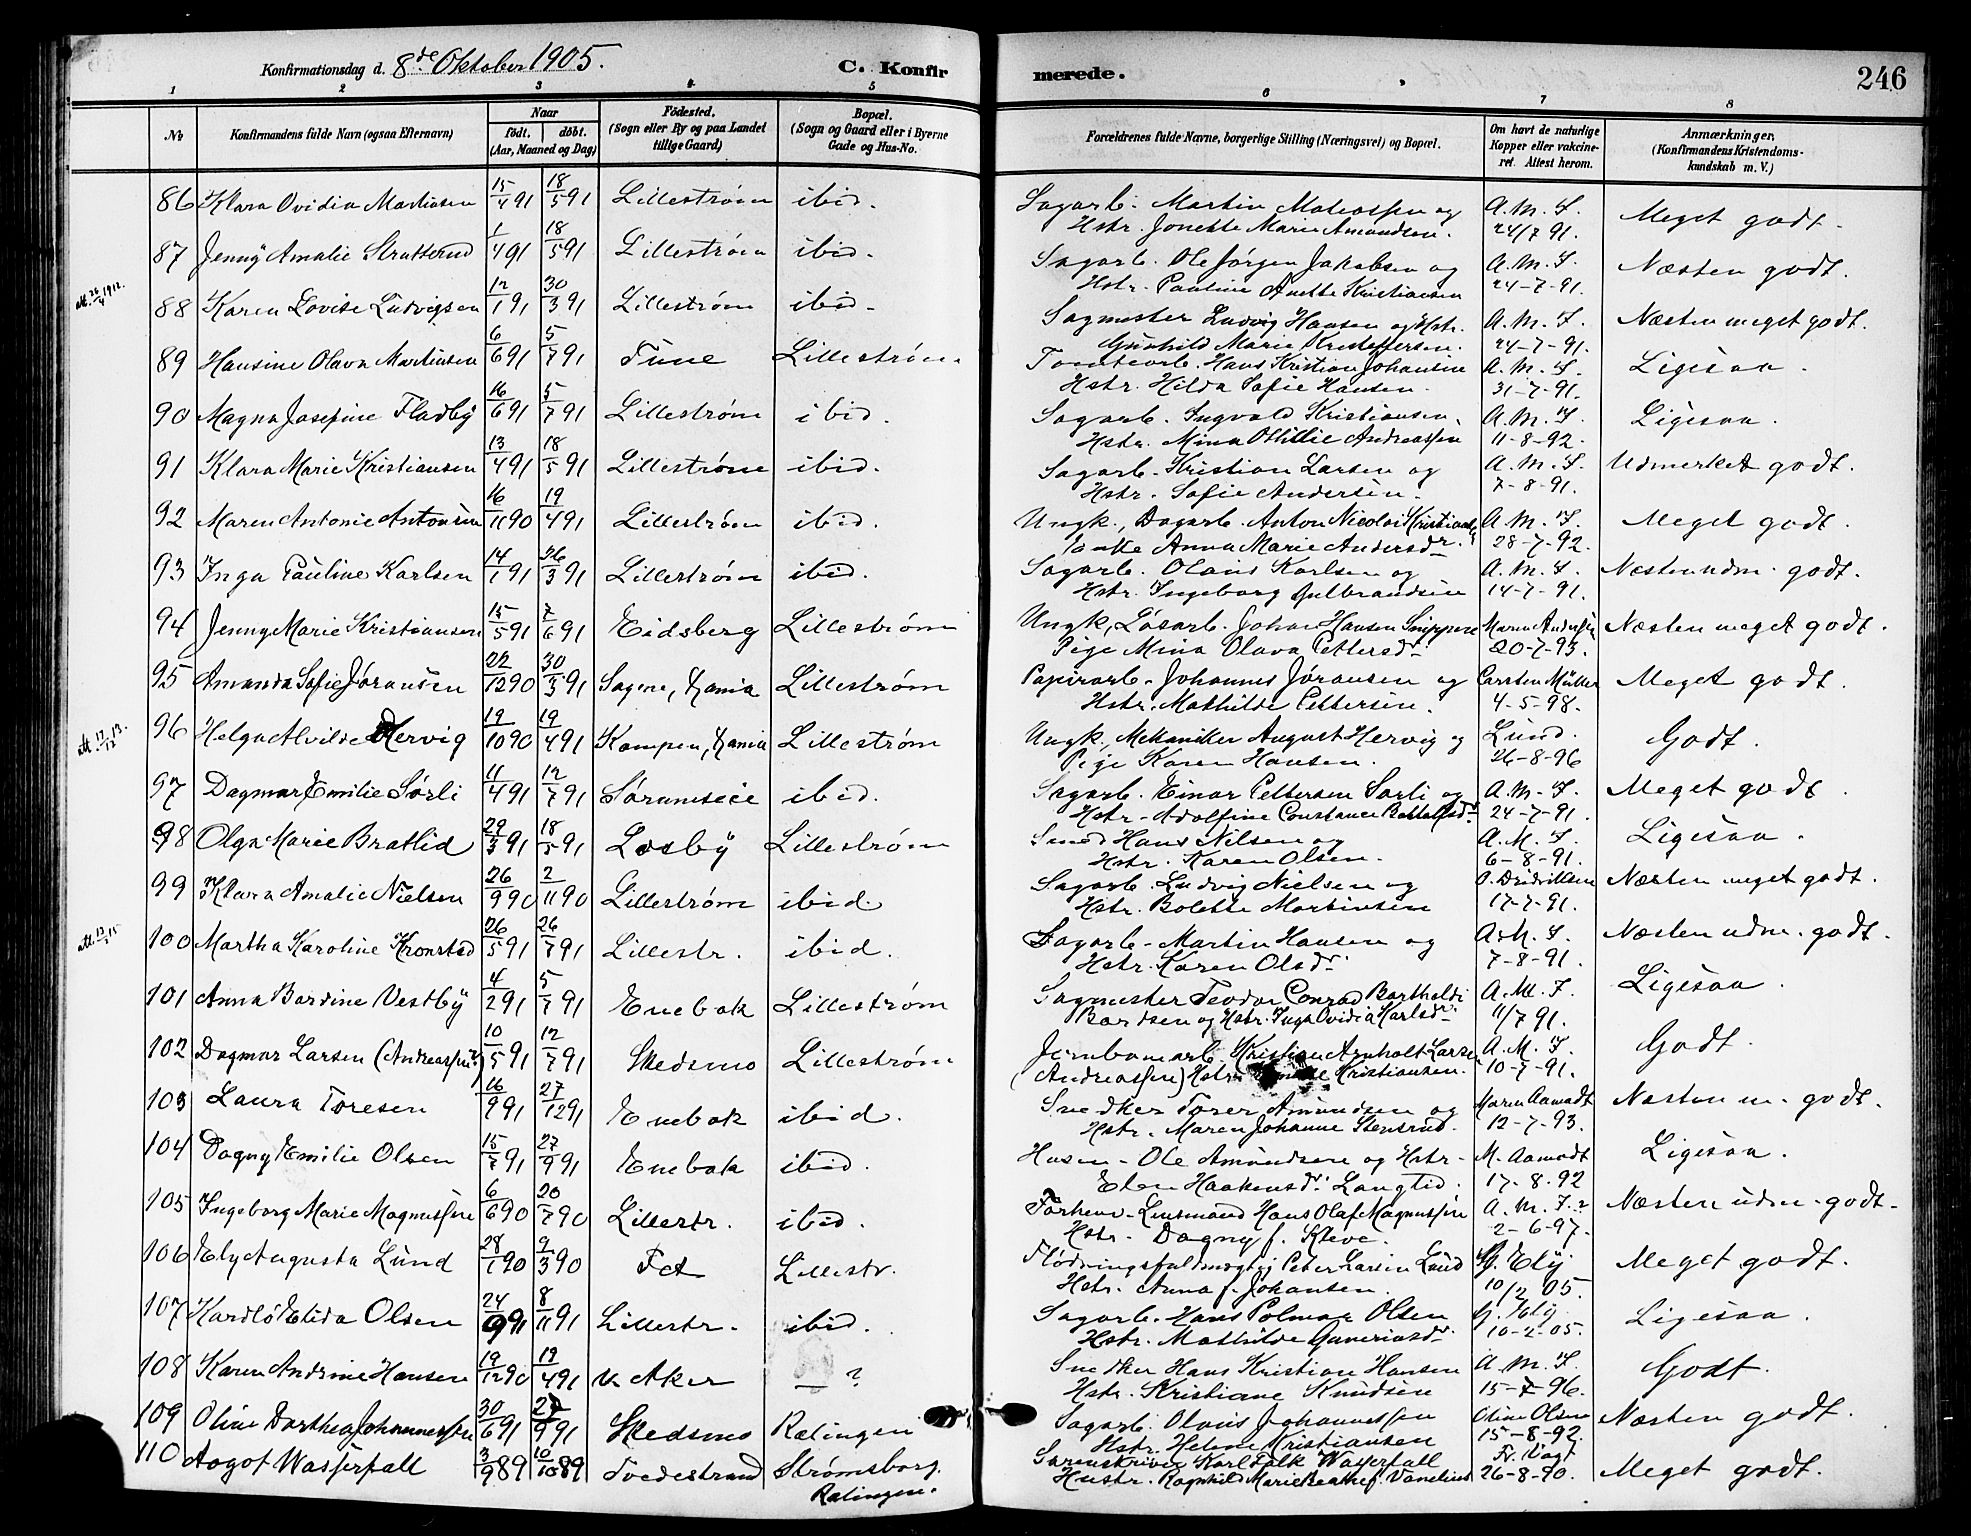 Konfirmationsdag d. 8de Oktober 1905. C. Konfir merede. 246
1 2 3 4 5 6 7 8
No Konfirmandens fulde Navn (ogsaa Efternavn) Naar födt, döbt. (Aar, Maaned og Dag) Födested. (Sogn eller By og paa Landet tillige Gaard) Bopæl. (Sogn og Gaard eller i Byerne Gade og Hus-No. Forældrenes fulde Navne, borgerlige Stilling (Næringsvei) og Bopæl. Om havt de naturlige Kopper eller vakcineret. Attest herom. Anmærkninger, (Konfirmandens Kristendomskundskab m. V.)
86 Klara Ovidia Martinsen 15/4 91 18/5 91 Lillestrøm ibid. Sagarb. Martin Mateassen og A. M. F. Meget godt.
Hstr. Jonette Marie Amundsen. 24/7 91.
87 Jenny Amalie Stratterud 1/4 91 18/5 91 Lillestrøm ibid. Sagarb. Ole Jørgen Jakobsen og A. M. F. Næsten godt.
Hstr. Pauline Anette Kristiansen 24-7-91.
att. 26/4 1912. 88 Karen Lovise Ludvigsen 12/1 91 30/3 91 Lillestrøm ibid. Sagmester Ludvig Hansen og Hstr. A. M. F. Næsten meget godt.
Gunhild Marie Kristoffersen. 24-7-91.
89 Hansine Olava Martinsen 6/6 91 5/7 91 Tune Lillestrøm. Tomtearb. Hans Kristian Johansen A. M. F. Ligesaa.
Hstr. Hilda Sofie Hansen. 31-7-91.
90 Magna Josefine Fladby 16/6 91 5/7 91 Lillestrøm ibid. Sagarb. Ingvald Kristiansen. A. M. F. Ligesaa.
Hstr. Mina Ottillie Andreassen 11-8-92.
91 Klara Marie Kristiansen 13/4 91 18/5 91 Lillestrøm ibid. Sagarb. Kristian Larsen og A. M. F. Udmerket godt.
Hstr. Sofie Andersen. 7-8-91.
92 Maren Antonie Antonsen 16/11 90 19/4 91 Lillestrøm ibid. Ungk., Dagarb. Anton Nicolai Kristians. A. M. F. Meget godt.
Anna Marie Andersdr. 28-7-92.
93 Inga Pauline Karlsen 14/1 91 26/3 91 Lillestrøm ibid. Sagarb. Olaus Karlsen og A. M. F. Næsten udm. godt.
Hstr. Ingeborg Gulbrandsen 14-7-91.
94 Jenny Marie Kristiansen 15/5 91 7/6 91 Eidsberg Lillestrøm Ungk., Løsarb. Johan Hansen Snippen Maren Andersen Næsten meget godt.
Pige Mina Olava Pettersdr. 20-7-93.
95 Amanda Sofie Jøransen 22/12 90 30/3 91 Sagene, Xania Lillestrøm Papirarb. Johannes Jøransen og Carsten Müller Meget godt.
Hstr. Mathilde Pettersen. 4-5-98.
att. 17/12 13. 96 Helga Alvilde Hervig 19/10 90 19/4 91 Kampen, Xania Lillestrøm Ungk., Mekaniker August Hervig og Lund. Godt.
Pige Karen Hansen. 26-8-96
97 Dagmar Emilie Sørli 11/4 91 12/7 91 Sørumseie ibid. Sagarb. Einar Pettersen Sørli og A. M. F. Meget godt
Hstr. Adolfine Constance 24-7-91.
98 Olga Marie Bratlid 29/3 91 18/5 91 Losby Lillestrøm Smed Hans Nilsen og A. M. F. Ligesaa.
Hstr. Karen Olsen. 6-8-91.
99 Klara Amalie Nielsen 26/9 90 2/11 90 Lillestrøm ibid. Sagarb. Ludvig Nielsen og O. Didriksen Næsten meget godt.
Hstr. Bolette Martinsen 17-7-91.
att. 15 100 Martha Karoline Kronstad 26/5 91 26/7 91 Lillestr. ibid. Sagarb. Martin Hansen og A. M. F. Næsten udm. godt.
Hstr. Karen Olsdr. 7-8-91.
101 Anna Bardine Vestby 4/2 91 5/7 91 Enebak Lillestrøm Sagmester Teodor Conrad Bartholdi A. M. F. Ligesaa.
Bardsen og Hstr. Inga Ovidia Karlsdr. 11/7 91.
102 Dagmar Larsen (Andreassen) 10/5 91 12/7 91 Skedsmo Lillestrøm Jernbanearb. Kristian Arnholt Larsen A. M. F. Godt.
(Andreassen) Hstr. Kristiansen. 10-7-91.
103 Laura Toresen 16/9 91 27/12 91 Enebak ibid. Snedker Torer Amundsen og Maren Aamodt Næsten m. godt.
Hstr. Maren Johanne Stensrud. 12-7-93.
104 Dagny Emilie Olsen 15/7 91 27/9 91 Enebak ibid. Husm. Ole Amundsen og Hstr. M. Aamodt Ligesaa.
Elen Haakensdr. Langlid. 17-8-92
105 Ingeborg Marie Magnussen 6/6 90 20/7 90 Lillestr. ibid. Forhenv. Lensmand Hans Olaf Magnussen A. M. F. Næsten udm. godt.
Hstr. Dagny f. Kleve. 2-6-97.
106 Ely Augusta Lund 28/1 90 9/3 90 Fet Lillestr. Flødningsfuldmægtig Peter Larsen Lund G. Ely Meget godt.
Hstr. Anna f. Johansen. 10/2 05.
107 Kardlø Elida Olsen 24/9 91 8/11 91 Lillestr. ibid. Sagarb. Hans Polmar Olsen G. Ely Ligesaa.
Hstr. Mathilde Guneriusdr. 10-2-05.
108 Karen Andrine Hansen 19/12 90 19/4 91 V. Aker — ? Snedker Hans Kristian Hansen A. M. F. Godt.
Hstr. Kristiane Knudsen 15-7-96.
109 Oline Dorthea Johannessen 30/6 91 27/9 91 Skedsmo Rælingen Sagarb. Olaus Johannessen Oline Olsen Næsten godt.
Hstr. Helene Kristiansen 15-8-92.
110 Aagot Wasserfall 3/9 89 10/10 89 Tvedestrand Strømsborg. Sorenskriver Karl Falk Wasserfall Fr. Vogt Meget godt.
Rælingen. Hustr. Ragnhild Marie Beathe f. Vanelius 26-8-90.